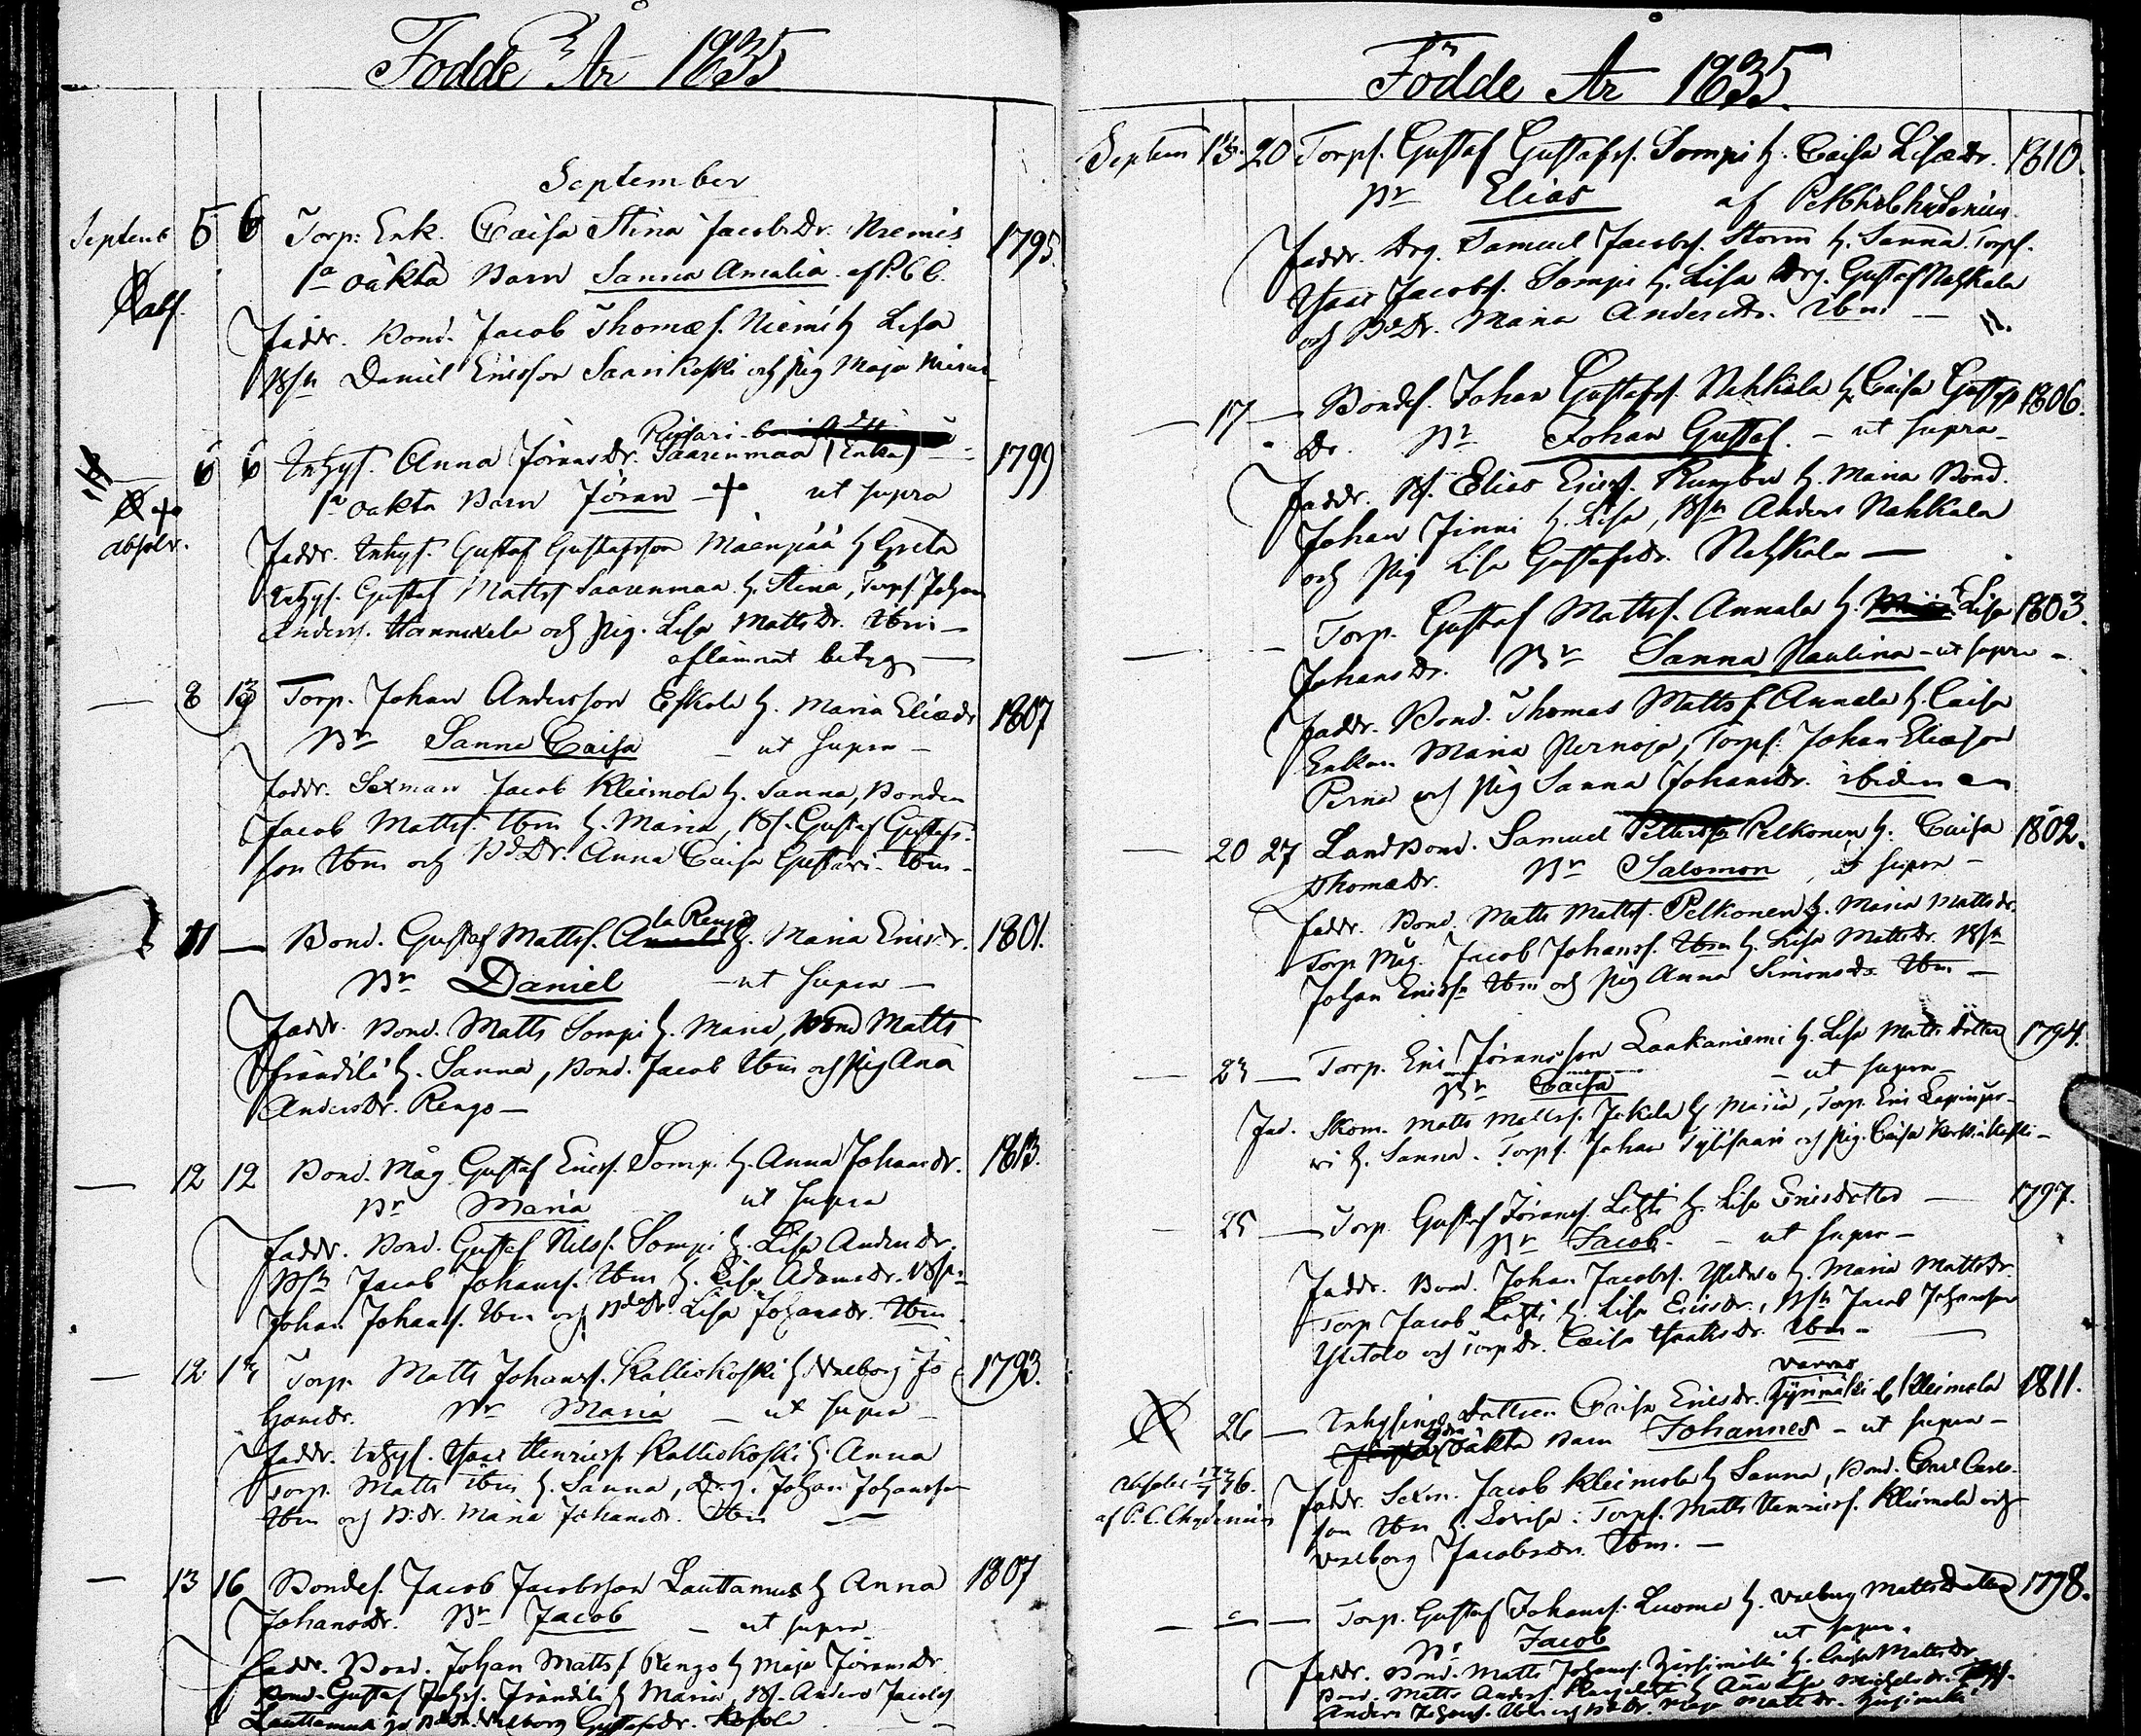 Födde År 1835
September
Septemb 5 6 Torp: Enk. Caisa Stina Jacobs Dr. Niemis 1795.
1a oäkta Barn Sanna Amalia af P.C.C.
Faddr. Bond. Jacob Thomæs. Niemi h. Lisa
Bsn Daniel Ericsson Saarikoski och Pig Maja
6 6 Inhys. Anna Jörans Dr. Saarenmaa (Enka) 1799
1a oäkta Barn Jöran ut supra
absolv.
Faddr. Inhys. Gustaf Gustafsson Mäenpää h Greta
Inhys. Gustaf Matts Saarenmaa h. Stina, Torps. Johan
Anders. Hannuxela och Pig. Lisa Matts Dr. Ibm
aflämnat betyg
8 13 Torp. Johan Andersson Eskola h. Maria Eliæ dr 1807
Br Sanna Caisa ut supra
Faddr. Sexman Jacob Kleimola h. Sanna, Bonden
Jacob Matts. Ibm h. Maria, Bs. Gustaf Gustafs-
son Ibm och Bd Dr. Anna Caisa Ibm
11 Bond. Gustaf Matts. h. Maria Erics dr. 1801.
Br Daniel ut supra
Faddr. Bond. Matts Sompi h. Maria, Bond Matts
Frändilä h. Sanna, Bond. Jacob Ibm och Pig Ana
Anders Dr. Rengo
12 12 Bond. Måg Gustaf Erics. Sompi h. Anna Johans dr. 1813.
Br Maria ut supra
Faddr. Bond. Gustaf Nils. Sompi h. Lisa Anders Dr.
Bsn Jacob Johans. Ibm h. Lisa Adams dr. Bsn
Johan Johans. Ibm och Bd Dr. Lisa Johans dr. Ibm
12 13 Torp. Matts Johans. Kallioskoski h. Walborg Jo 1793.
hans dr. Br Maria ut supra
Faddr. Inhys. Isac Henrics. Kallioskoski h. Anna
Torp. Matts Ibm h. Sanna, Drg. Johan Johansson
Ibm och B.dr. Maria Johans dr. Ibm
13 16 Bondes. Jacob Jacobsson Lauttamus h Anna 1807
Johans dr. Br Jacob ut supra
Faddr. Bond. Johan Matts. Rengo h Maja Jörans Dr.
Bond. Gustaf Johs. Frändilä h Maria, Bs. Anders Jacobs
Lauttamus och Walborg Gustafs dr.
Födde År 1835.
Septem 13. 20 Torps. Gustaf Gustafss. Sompi h. Caisa Lisæ dr. 1810.
Br Elias af Chydenius
Faddr. Drg. Samuel Jacobs. Storm h. Sanna. Torps.
Isaac Jacobs. Sompi h. Lisa Drg. Gustaf Nahkala
och Bd Dr. Maria Anders Dr. Ibm
17 Bondes. Johan Gustafs. Nahkala h. Caisa Gustafs 1806.
Dr. Br Johan Gustaf. ut supra
Faddr. Bs. Elias Erics. h. Maria Bond.
Johan Finni h. Lisa, Bsn Anders Nahkala
och Pig Lisa Gustafs dr. Nahkala
Torp. Gustaf Matts. Annala h. Lisa 1803.
Johans Dr. Br Sanna Paulina ut supra
Faddr. Bond. Thomas Matts. Annala h. Caisa
Enkan Maria Pernoja, Torps. Johan Eliæson
Perna och Pig Sanna Johans dr. ibidem
20 27 Land Bond. Samuel Pelkonen h. Caisa 1802.
Thomæ Dr. Br Salomon ut supra
Faddr. Bond. Matts Matts. Pelkonen h. Maria Matts dr.
Torp Måg. Jacob Johans. Ibm h. Lisa Matts Dr. Bsn
Johan Ericsn Ibm och Pig Anna Simons dr. Ibm
23 Torp. Eric Jöransson Laakaniemi h. Lisa Matts dotter 1794.
Br Caisa ut supra
Fad. Skom. Matts Matts. Jukela h Maria, Torp. Eric
h. Sanna. Torps. Johan och Pig. Caisa
25 Torp. Gustaf Jörans. Lehti h. Lisa Ericsdotter 1797.
Br Jacob. ut supra
Faddr. Bond. Johan Jacobs. Ylitalo h. Maria Matts Dr.
Torp Jacob Lehti h. Lisa Erics dr., Bsn Jacob Johansson
Ylitalo och Torp Dr. Caisa Isaks Dr. Ibm
26 Inhysings Dottren Caisa Erics dr. Kleimola 1811.
oäkta Barn Johannes ut supra
af P. C. Chydenius
Faddr. Sexm. Jacob Kleimola h Sanna, Bond. Carl Carls-
son Ibm h. Lovisa. Torps. Matts Henrics. Kleimola och
Walborg Jacobs dr. Ibm.
Torp. Gustaf Johans. Luoma h. Walborg Matts Dotter 1798.
Br Jacob ut supra
Faddr. Bond. Matts Johans. h. Caisa Matts Dr
Bond. Matts Anders. h Anna Lisa Michels dr.
Anders Johans. Ibm och Maja Matts dr.